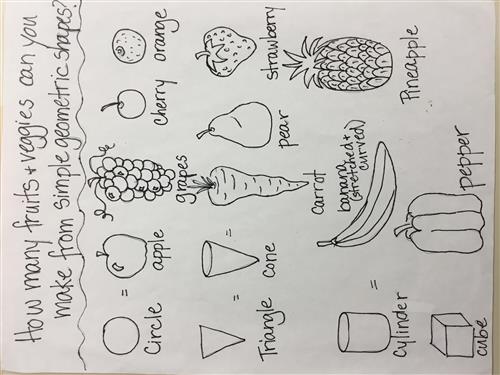 How many fruits + veggies can you
make from simple geometric shapes?
=
Circle apple grapes cherry orange
=
Triangle cone carrot pear strawberry
banana
(stretched +
curved)
=
Cylinder
Pineapple
cube pepper